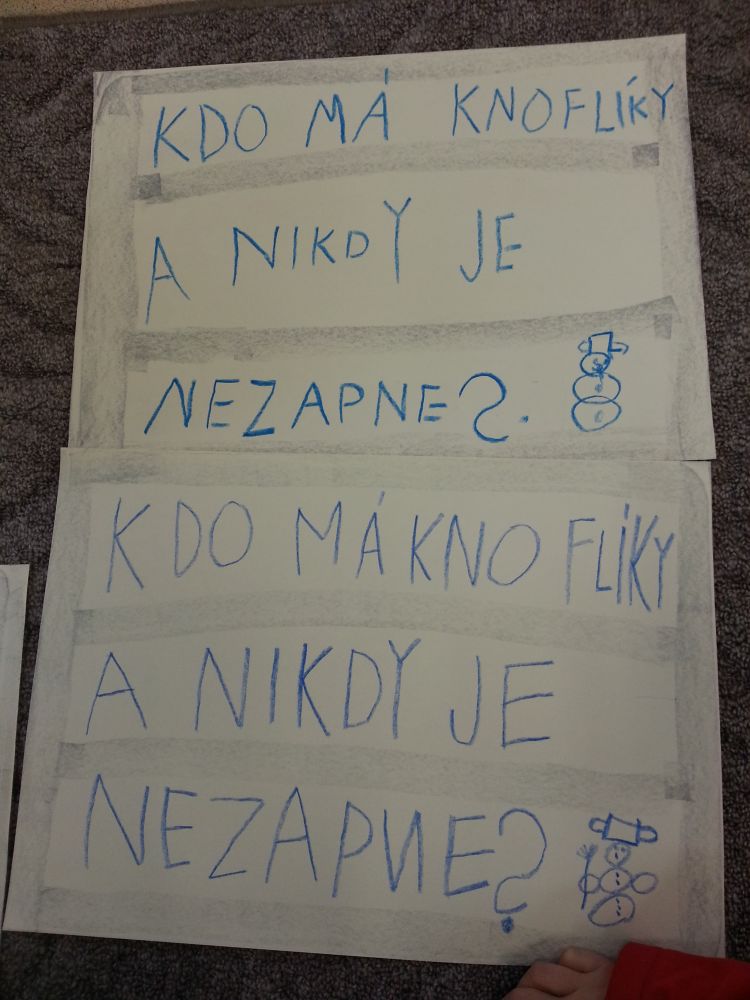 KDO MÁ KNOFLÍKY
A NIKDY JE
NEZAPNE?
KDO MÁ KNOFLÍKY
A NIKDY JE
NEZAPNE?